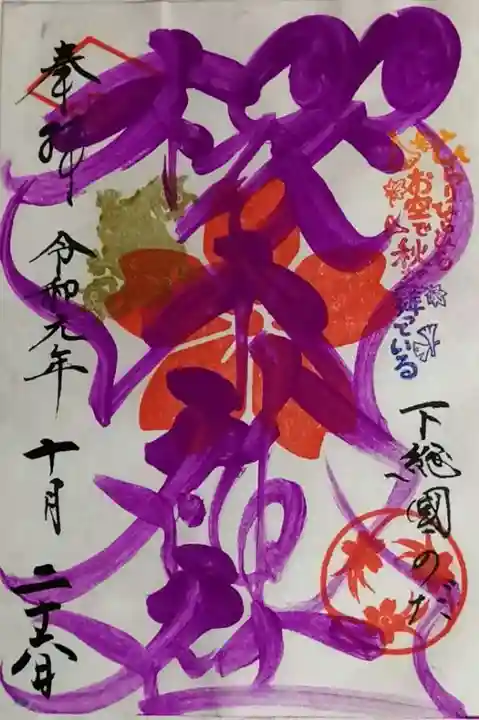 お空で秋が舞っている
下総國のた
桜木神社
奉拝
令和元年
十月
二十六日